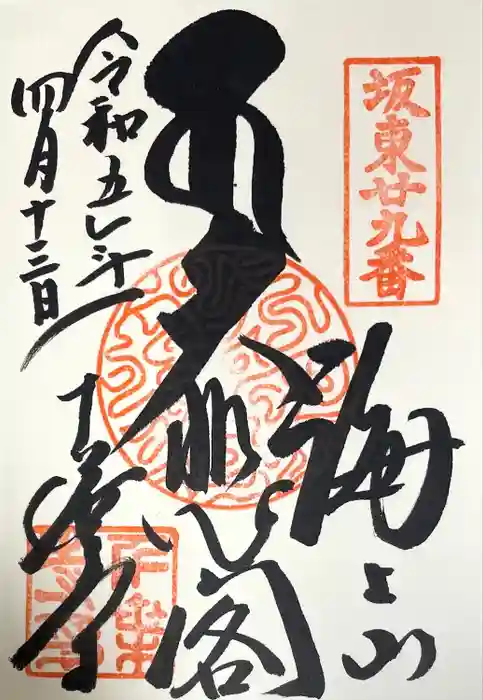 坂東廿九番
海上山
閣
千葉寺
令和五年
四月十三日